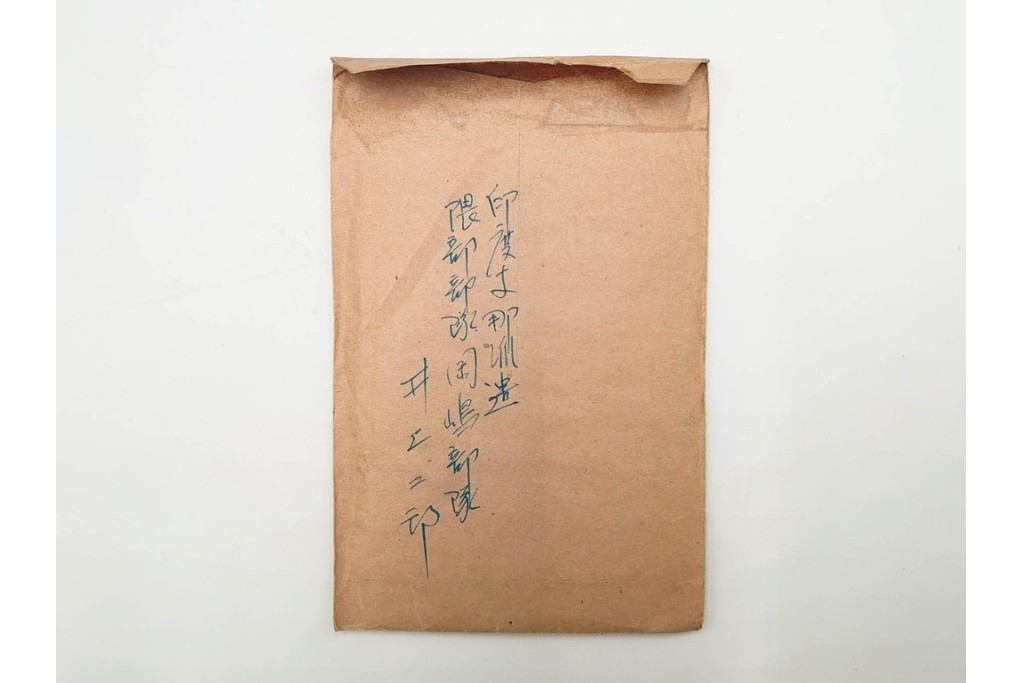 印度支那派遣
隈部部隊岡嶋部隊
井上二郎